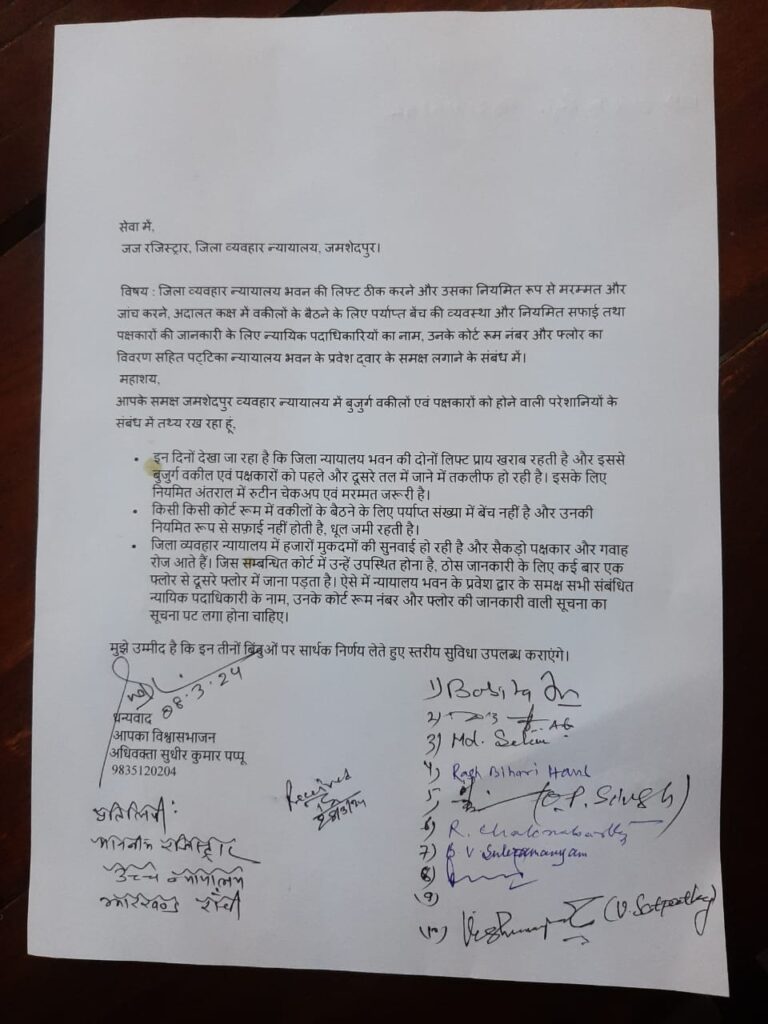 सेवा में,
जज रजिस्ट्रार, जिला व्यवहार न्यायालय, जमशेदपुर।
विषय : जिला व्यवहार न्यायालय भवन की लिफ्ट ठीक करने और उसका नियमित रूप से मरम्मत और
जांच करने, अदालत कक्ष में वकीलों के बैठने के लिए पर्याप्त बेंच की व्यवस्था और नियमित सफाई तथा
पक्षकारों की जानकारी के लिए न्यायिक पदाधिकारियों का नाम, उनके कोर्ट रूम नंबर और फ्लोर का
विवरण सहित पट्टिका न्यायालय भवन के प्रवेश द्वार के समक्ष लगाने के संबंध में।
महाशय,
आपके समक्ष जमशेदपुर व्यवहार न्यायालय में बुजुर्ग वकीलों एवं पक्षकारों को होने वाली परेशानियों के
संबंध में तथ्य रख रहा हूं,
• इन दिनों देखा जा रहा है कि जिला न्यायालय भवन की दोनों लिफ्ट प्राय खराब रहती है और इससे
बुजुर्ग वकील एवं पक्षकारों को पहले और दूसरे तल में जाने में तकलीफ हो रही है। इसके लिए
नियमित अंतराल में रुटीन चेकअप एवं मरम्मत जरूरी है।
• किसी किसी कोर्ट रूम में वकीलों के बैठने के लिए पर्याप्त संख्या में बेंच नहीं है और उनकी
नियमित रूप से सफ़ाई नहीं होती है, धूल जमी रहती है।
• जिला व्यवहार न्यायालय में हजारों मुकदमों की सुनवाई हो रही है और सैकड़ो पक्षकार और गवाह
रोज आते हैं। जिस सम्बन्धित कोर्ट में उन्हें उपस्थित होना है, ठोस जानकारी के लिए कई बार एक
फ्लोर से दूसरे फ्लोर में जाना पड़ता है। ऐसे में न्यायालय भवन के प्रवेश द्वार के समक्ष सभी संबंधित
न्यायिक पदाधिकारी के नाम, उनके कोर्ट रूम नंबर और फ्लोर की जानकारी वाली सूचना का
सूचना पट लगा होना चाहिए।
मुझे उम्मीद है कि इन तीनों बिंदुओं पर सार्थक निर्णय लेते हुए स्तरीय सुविधा उपलब्ध कराएंगे।
08.3.24
धन्यवाद
आपका विश्वासभाजन
अधिवक्ता सुधीर कुमार पप्पू
9835120204
प्रतिलिपि:
माननीय रजिस्ट्रार
उच्च न्यायालय
झारखण्ड राँची
Received
1)
2)
3) Md. Selim
4) Rash Bihari
5) (O.P. Singh)
6) R. Chakrabarty
7) B V Subramanyam
8)
9)
10) (V. Satpathy)